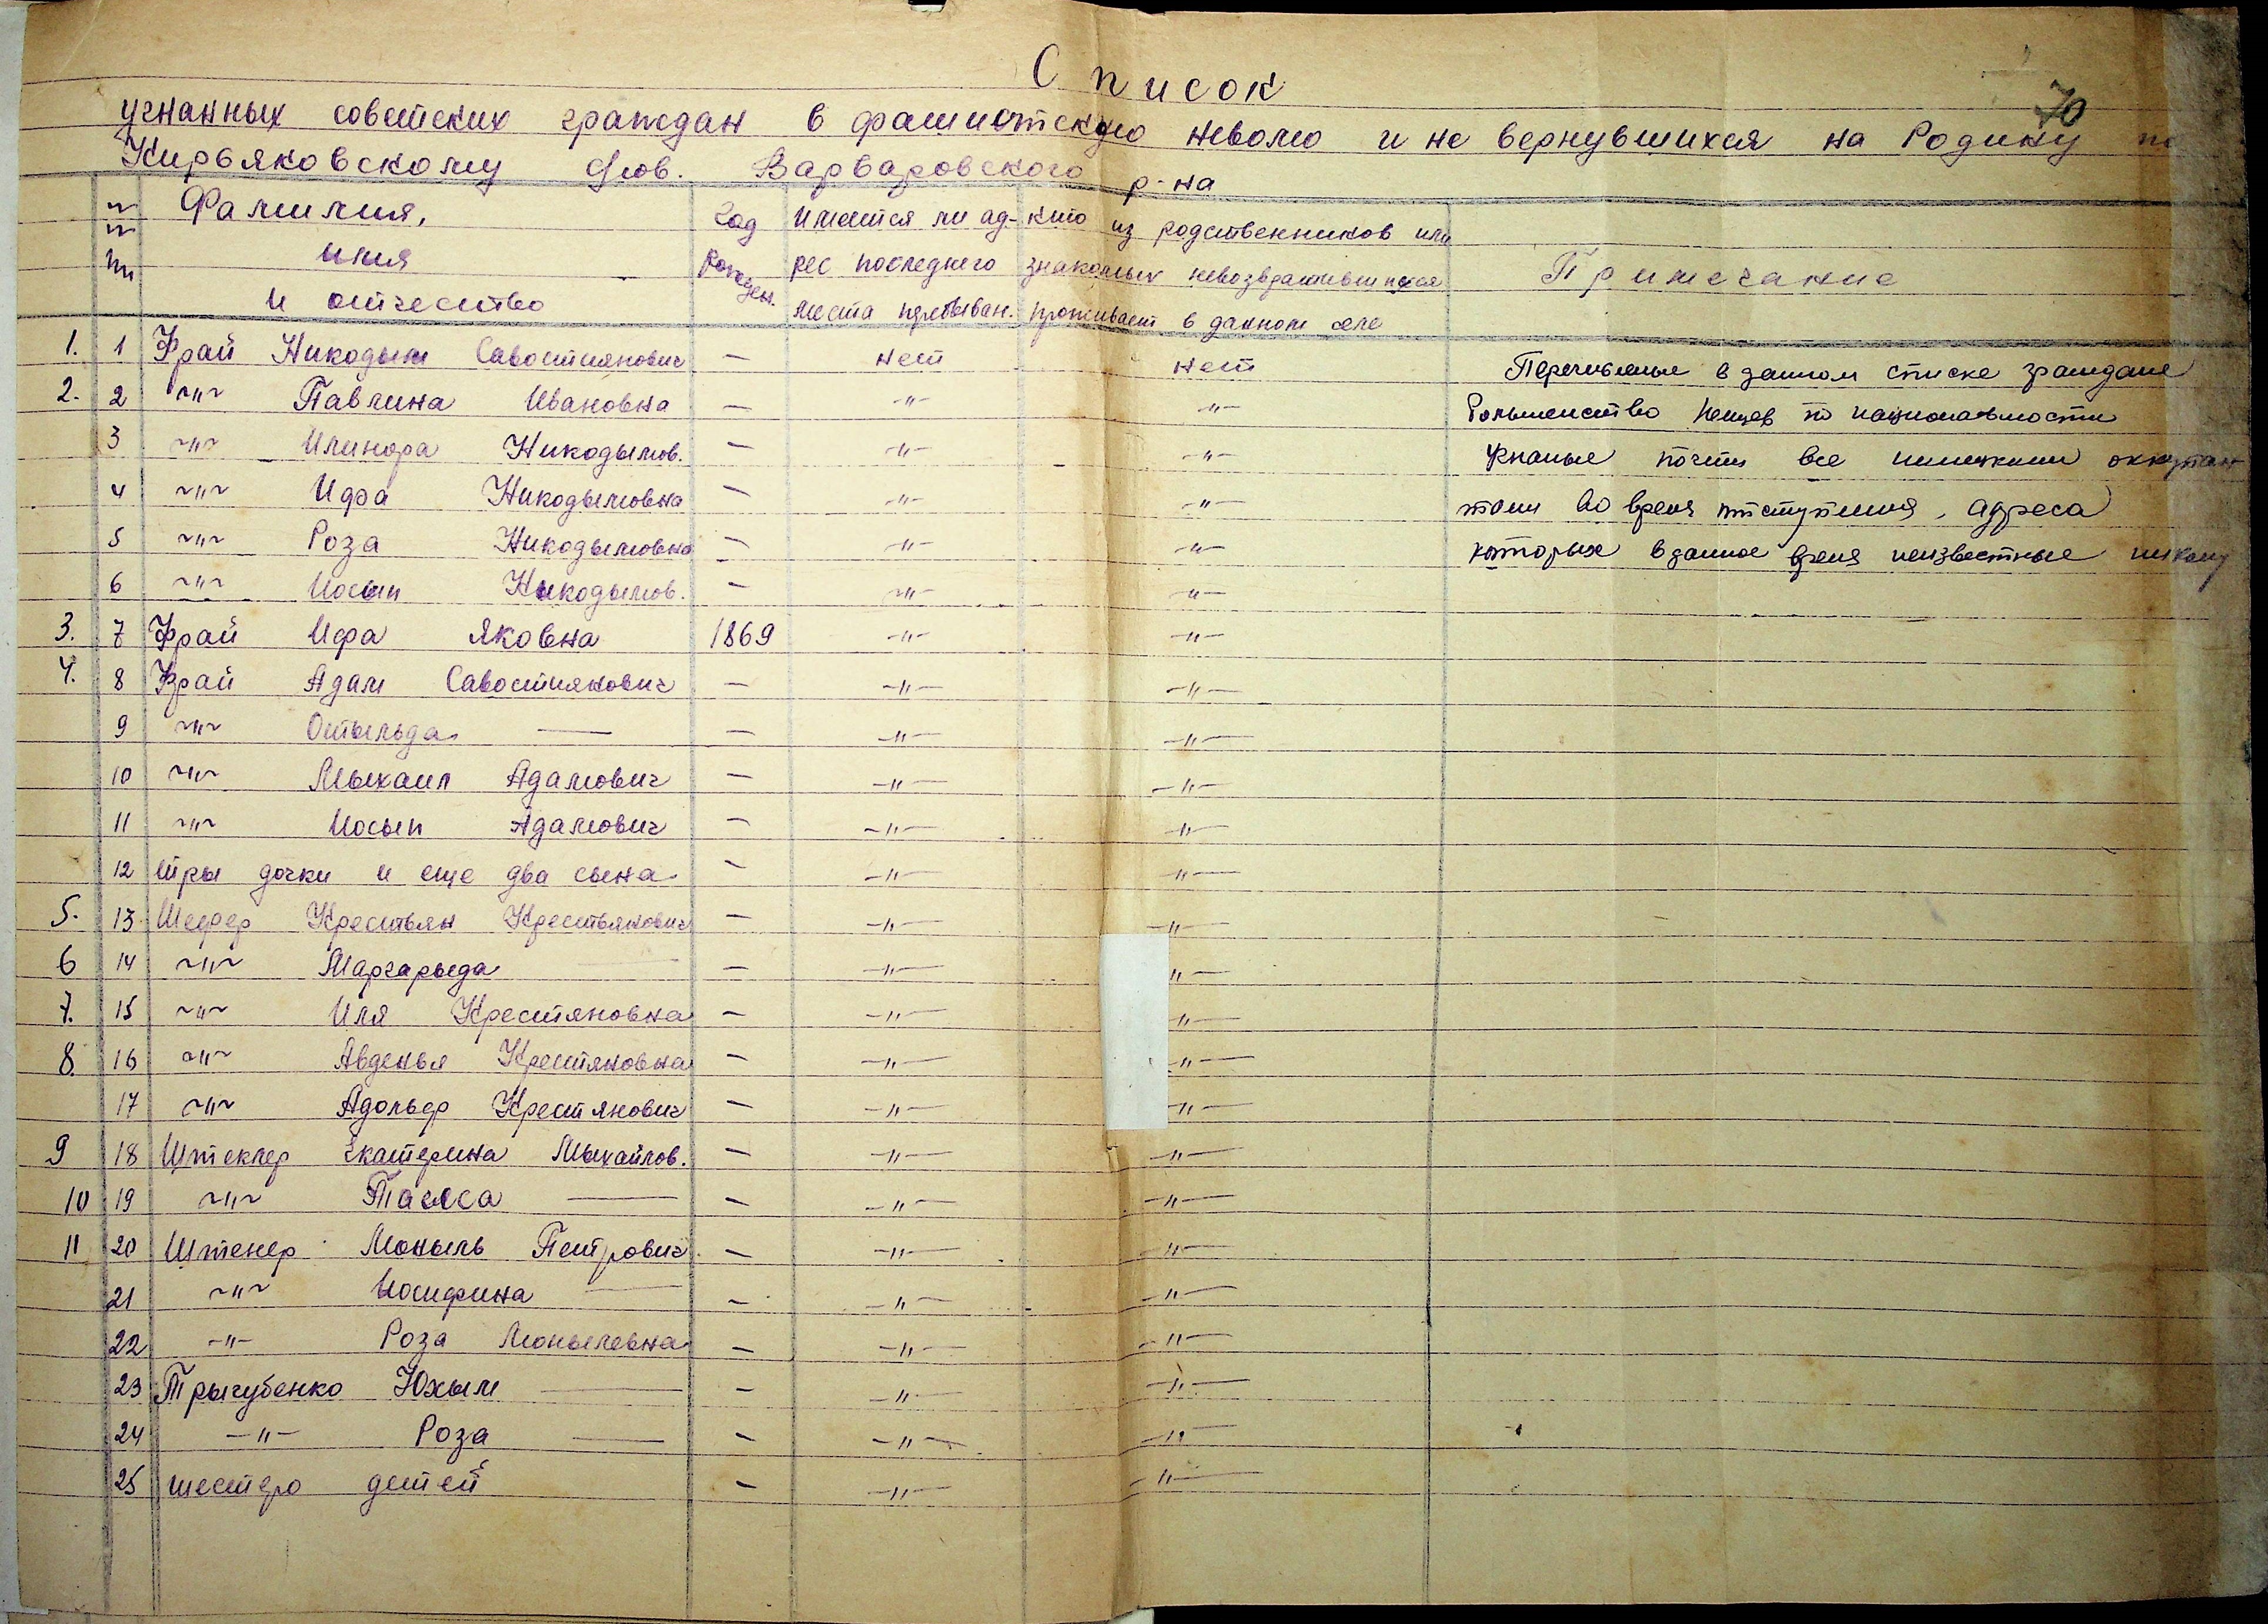 Список
70
угнанных советских граждан в фашистскую неволю и не вернувшихся на Родину по
Кирьяковскому с/сов. Варваровского р-на
Фамилия, имя и отчество | Год рожден. | Имеется ли адрес последнего места пребыван. | кто из родственников или знакомых невозвратившихся проживает в данном селе | Примечание
1. 1 Фрай Никодым Савостиянович — нет нет
2. 2 ~"~ Павлина Ивановна — -"- -"-
3 ~"~ Илинора Никодымов. — -"- -"-
4 ~"~ Ифа Никодымовна — -"- -"-
5 ~"~ Роза Никодымовна — -"- -"-
6 ~"~ Иосып Никодымов. — -"- -"-
3. 7 Фрай Ифа Яковна 1869 -"- -"-
4. 8 Фрай Адам Савостиянович — -"- -"-
9 ~"~ Отыльда — — -"- -"-
10 ~"~ Мыхаил Адамович — -"- -"-
11 ~"~ Иосып Адамович — -"- -"-
12 тры дочки и еще два сына — -"- -"-
5. 13 Шефер Крестьян Крестьянович — -"- -"-
6 14 ~"~ Маргарыда — -"- -"-
7. 15 ~"~ Иля Крестяновна — -"- -"-
8. 16 ~"~ Авденья Крестяновна — -"- -"-
17 ~"~ Адольф Крестянович — -"- -"-
9 18 Штеклер Екатерина Мыхайлов. — -"- -"-
10 19 ~"~ Таиса — — -"- -"-
11 20 Штенер Моныль Петрович — -"- -"-
21 ~"~ Иосифина — — -"- -"-
22 -"- Роза Монылевна — -"- -"-
23 Трыгубенко Юхым — — -"- -"-
24 -"- Роза — — -"- -"-
25 шестеро детей — -"- -"-
Перечисленые в данном списке граждане
большенство немцев по национальности
Угнаные почти все немецкими оккупан
тами во время отступления, адреса
которых в данное время неизвестные никому